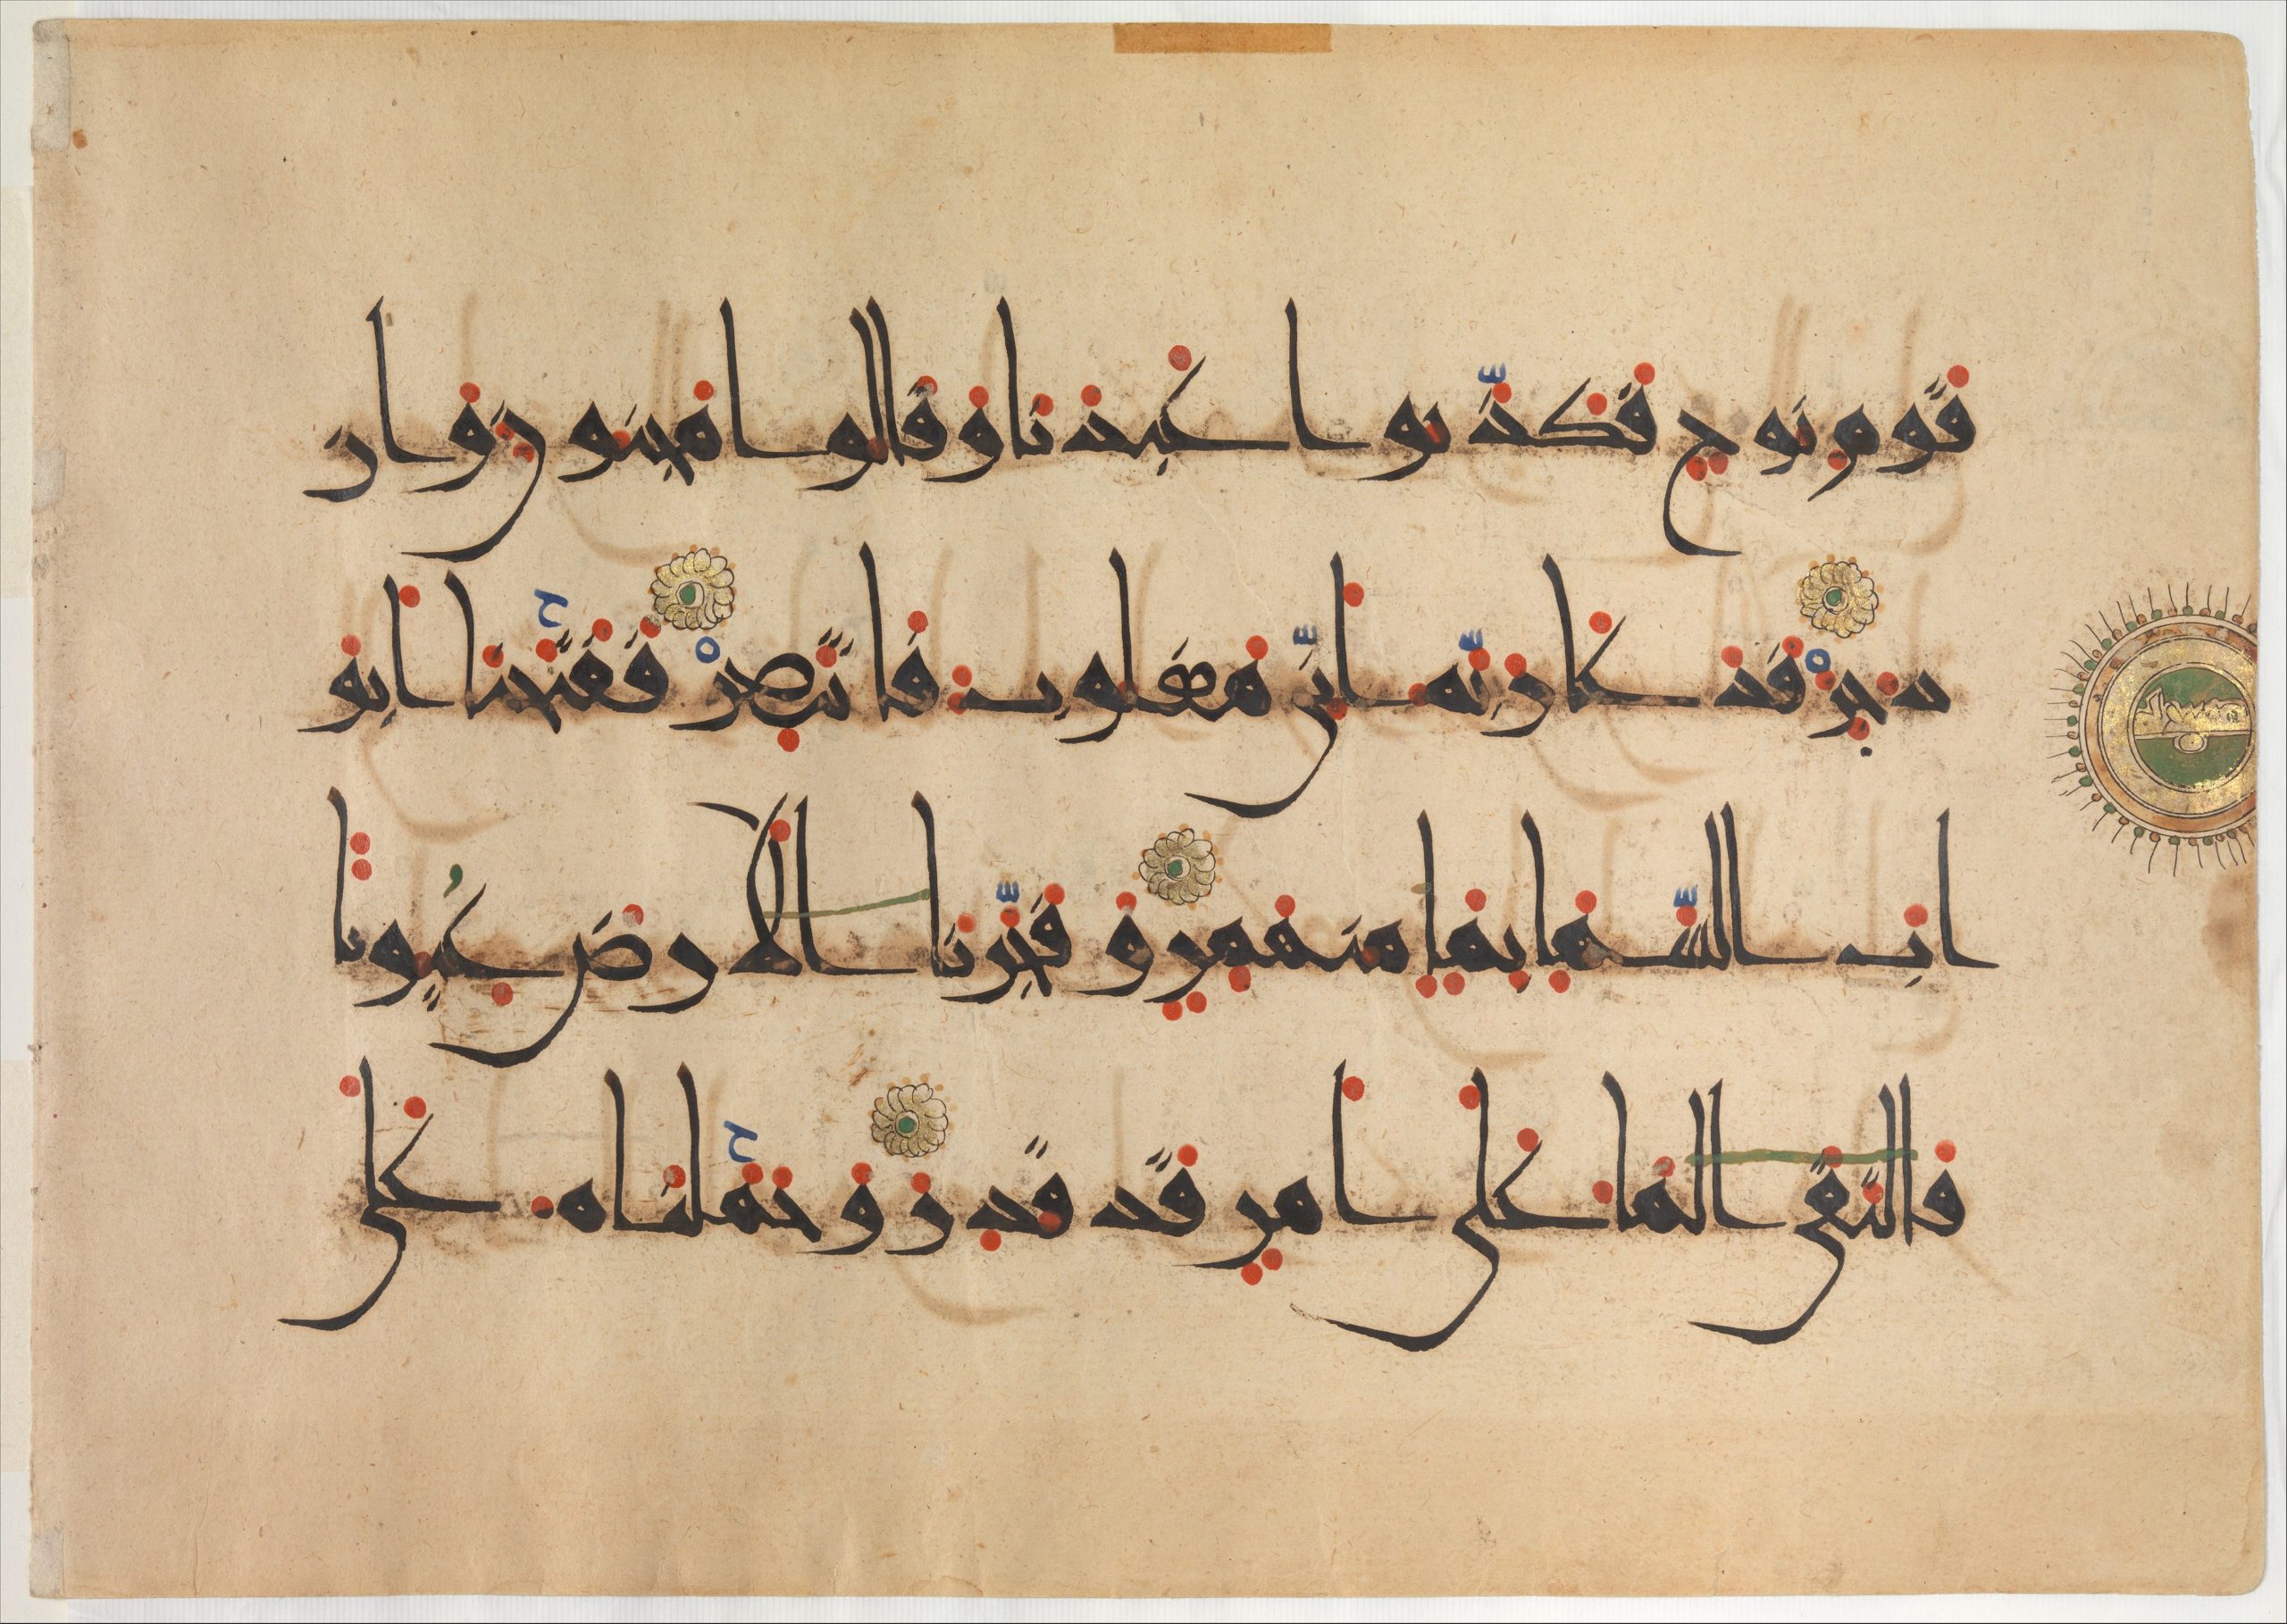 قوم نوح فكذبوا عبدنا وقالوا مجنون واز
دجر فدعا ربه انى مغلوب فانتصر ففتحنا ابو
اب السما بما منهمر وفجرنا الارض عيونا
فالتقى الما على امر قد قدر وحملناه على